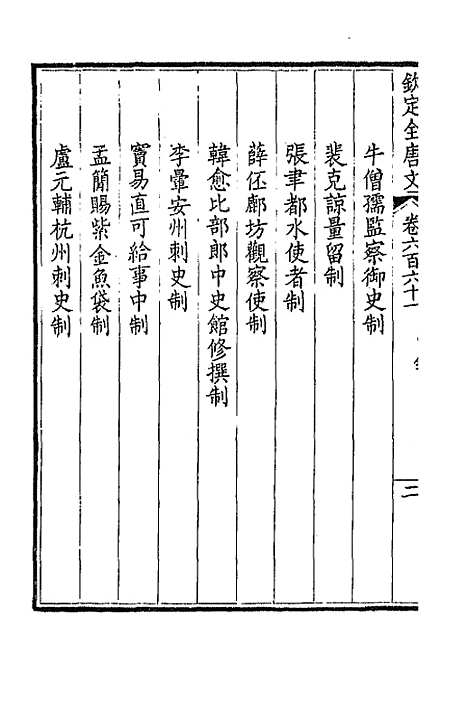 欽定全唐文 卷六百六十一 目錄 二
牛僧孺監察御史制
裴克諒量留制
張聿都水使者制
薛伾鄜坊觀察使制
韓愈比部郎中史館修撰制
李暈安州刺史制
竇易直可給事中制
孟簡賜紫金魚袋制
盧元輔杭州刺史制